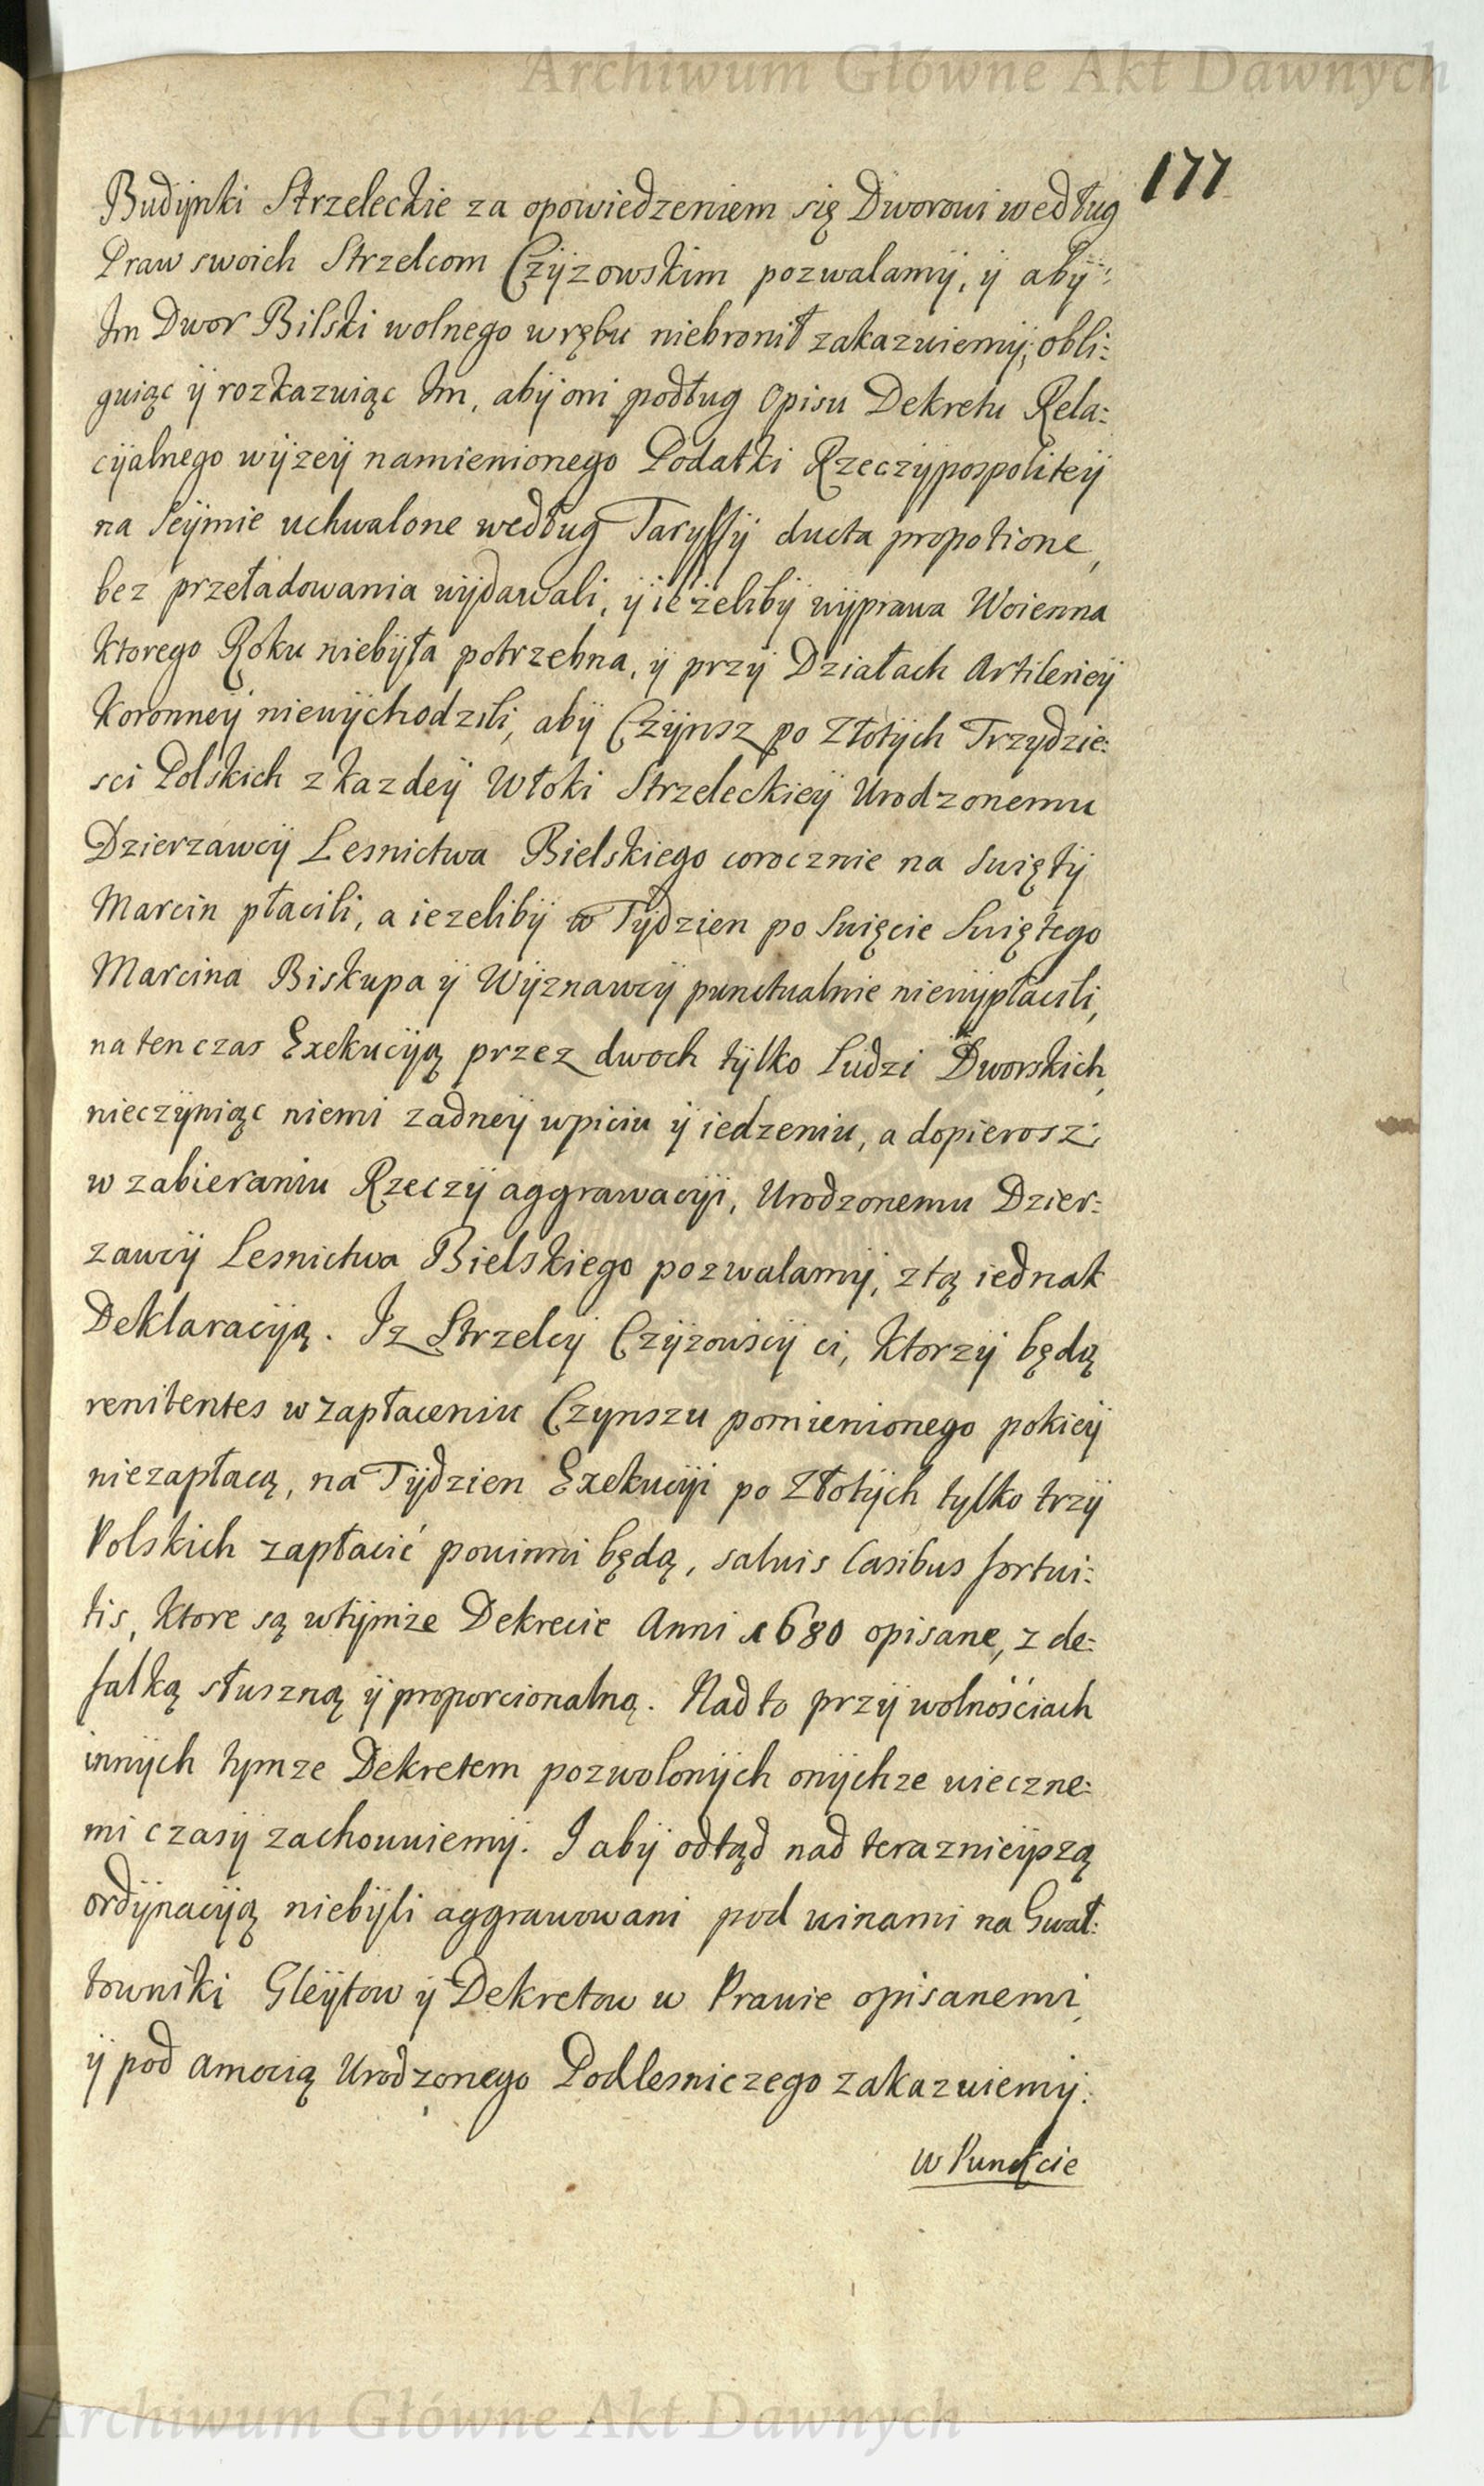 Archiwum Główne Akt Dawnych
177
Budÿnki Strzeleckie za opowiedzeniem się Dworowi według
Praw swoich Strzelcom Czÿzowskim pozwalamÿ, ÿ abÿ
Im Dwor Bilski wolnego wrębu niebronił zakazuiemÿ, obli:
guiąc ÿ rozkazuiąc Im, abÿ oni podług Opisu Dekretu Rela:
cÿalnego wÿzeÿ namienionego Podatki Rzeczÿpospoliteÿ
na Seÿmie uchwalone według Taryffÿ ducta propotione,
bez przeładowania wÿdawali, ÿ ieżelibÿ wÿprawa Woienna
ktorego Roku niebÿła potrzebna, ÿ przÿ Działach Artilerieÿ
Koronneÿ niewÿchodzili, abÿ Czÿnsz po Złotÿch Trzydzie:
sci Polskich z kazdeÿ Włoki Strzeleckieÿ Urodzonemu
Dzierzáwcÿ Lesnictwa Bielskiego corocznie na Swiętÿ
Marcin płacili, a iezelibÿ w Tÿdzien po Swięcie Swiętego
Marcina Biskupa ÿ Wÿznawcÿ punctualnie niewÿpłacili,
na ten czas Exekucÿą przez dwoch tÿlko ludzi Dworskich,
nieczÿniąc niemi zadneÿ wpiciu ÿ iedzeniu, a dopierosz
w zabieraniu Rzeczÿ aggrawacÿi, Urodzonemu Dzier:
zawcÿ Lesnictwa Bielskiego pozwalamÿ, z tą iednak
Deklaracÿą. Iz Strzelcÿ Czÿzowscÿ ci, ktorzÿ będą
renitentes w zapłaceniu Czynszu pomienionego pokieÿ
niezapłacą, na Tÿdzien Exekucÿi po Złotÿch tylko trzÿ
Polskich zapłacić powinni będą, salvis Casibus fortui:
tis, ktore są wtÿmże Dekrecie Anni 1680 opisane, z de:
falką słuszną ÿ proporcionalną. Nad to przÿ wolnościach
innÿch tymze Dekretem pozwolonÿch onÿchze wieczne:
mi czasÿ zachowuiemÿ. I abÿ odtąd nad teraznieÿszą
ordÿnacÿą niebÿli aggrawowani pod winami na Gwał:
towniki Gleÿtow ÿ Dekretow w Prawie opisanemi,
ÿ pod amocią Urodzonego Podlesniczego zakazuiemÿ.
w Punkcie
Archiwum Główne Akt Dawnych